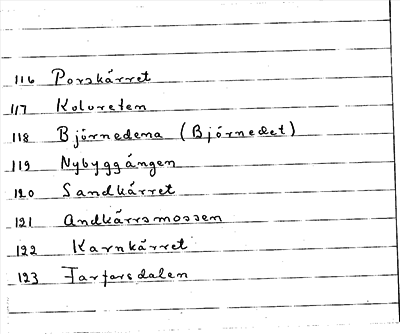 116 Porskärret
117 Kolvreten
118 Björnedema (Björnedet)
119 Nybyggången
120 Sandkärret
121 Andkärrsmossen
122 Karnkärret
123 Farfarsdalen